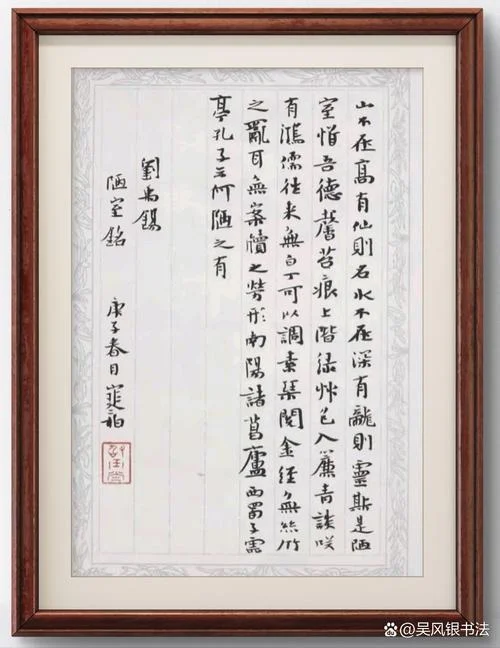 山不在高有仙則名水不在深有龍則靈斯是陋
室惟吾德馨苔痕上階綠艸色入簾青談咲
有鴻儒往來無白丁可以調素琴閱金經無絲竹
之亂耳無案牘之勞形南陽諸葛廬西蜀子雲
亭孔子云何陋之有
劉禹錫
陋室銘
庚子春日
@吴风银书法